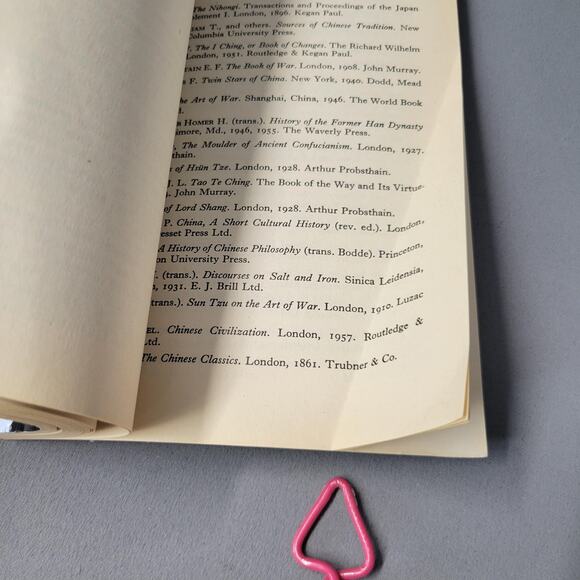 The Nihongi. Transactions and Proceedings of the Japan
plement I. London, 1896. Kegan Paul.
IAM T., and others. Sources of Chinese Tradition. New
Columbia University Press.
The I Ching, or Book of Changes. The Richard Wilhelm
London, 1951. Routledge & Kegan Paul.
TAIN E. F. The Book of War. London, 1908. John Murray.
F. Twin Stars of China. New York, 1940. Dodd, Mead
he Art of War. Shanghai, China, 1946. The World Book
HOMER H. (trans.). History of the Former Han Dynasty
imore, Md., 1946, 1955. The Waverly Press.
The Moulder of Ancient Confucianism. London, 1927.
sthain.
s of Hsün Tze. London, 1928. Arthur Probsthain.
J. L. Tao Te Ching. The Book of the Way and Its Virtue.
John Murray.
of Lord Shang. London, 1928. Arthur Probsthain.
P. China, A Short Cultural History (rev. ed.). London,
esset Press Ltd.
A History of Chinese Philosophy (trans. Bodde). Princeton,
on University Press.
(trans.). Discourses on Salt and Iron. Sinica Leidensia,
1931. E. J. Brill Ltd.
trans.). Sun Tzu on the Art of War. London, 1910. Luzac
EL. Chinese Civilization. London, 1957. Routledge &
Ltd.
The Chinese Classics. London, 1861. Trubner & Co.